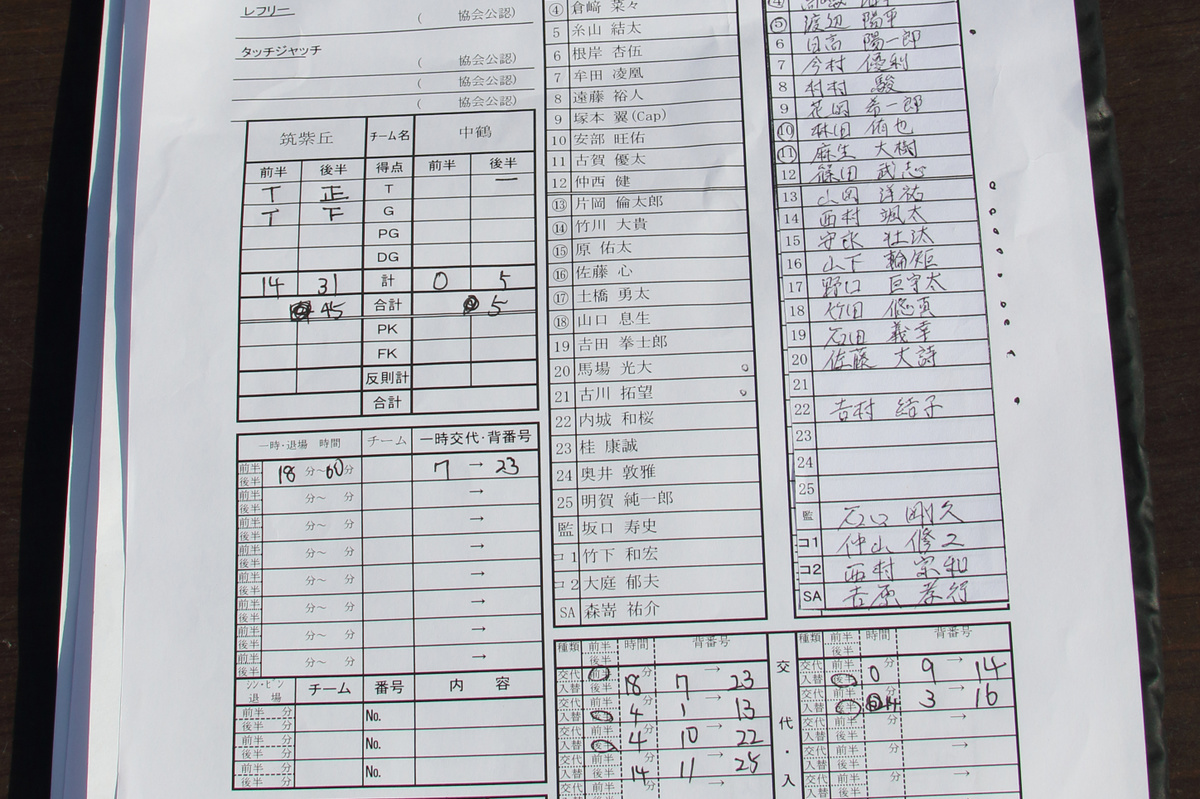 レフリー
( 協会公認)
タッチジャッチ
( 協会公認)
( 協会公認)
( 協会公認)
筑紫丘 チーム名 中鶴
前半 後半 得点 前半 後半
T 正 T 一
T 下 G
PG
DG
14 31 計 0 5
45 合計 5
PK
FK
反則計
合計
一時・退場 時間 チーム 一時交代・背番号
前半 後半 18分～60分 7 → 23
前半 後半 分～ 分 →
前半 後半 分～ 分 →
前半 後半 分～ 分 →
前半 後半 分～ 分 →
前半 後半 分～ 分 →
前半 後半 分～ 分 →
前半 後半 分～ 分 →
シン・ビン 退場 チーム 番号 内 容
前半 分 後半 分 No.
前半 分 後半 分 No.
前半 分 後半 分 No.
④ 倉崎 菜々
5 糸山 結太
6 根岸 杏伍
7 牟田 凌凰
8 遠藤 裕人
9 塚本 翼(Cap)
10 安部 旺佑
11 古賀 優太
12 仲西 健
⑬ 片岡 倫太郎
⑭ 竹川 大貴
⑮ 原 佑太
⑯ 佐藤 心
⑰ 土橋 勇太
⑱ 山口 息生
19 吉田 拳士郎
20 馬場 光大
21 古川 拓望
22 内城 和桜
23 桂 康誠
24 奥井 敦雅
25 明賀 純一郎
監 坂口 寿史
コ1 竹下 和宏
コ2 大庭 郁夫
SA 森嵜 祐介
⑤ 渡辺 陽平
6 日高 陽一郎
7 今村 優利
8 村村 駿
9 花岡 希一郎
⑩ 林田 侑也
⑪ 麻生 大樹
12 篠田 武志
13 山岡 洋祐
14 西村 颯太
15 安永 壮汰
16 山下 輪矩
17 野口 巨宇太
18 竹田 悠真
19 石田 義幸
20 佐藤 大詩
21
22 吉村 結子
23
24
25
監 石口 剛久
コ1 仲山 修二
コ2 西村 宗和
SA 吉原 孝行
種類 前半 後半 時間 背番号
交代 入替 前半 後半 18分 7 → 23
交代 入替 4 1 → 13
交代 入替 4 10 → 22
交代 入替 前半 後半 14分 11 → 25
交代・入
種類 前半 後半 時間 背番号
交代 入替 前半 後半 0分 9 → 14
交代 入替 前半 後半 14 3 → 16
交代 入替 前半 後半 分 →
交代 入替 前半 後半 分 →
交代 前半 分 →